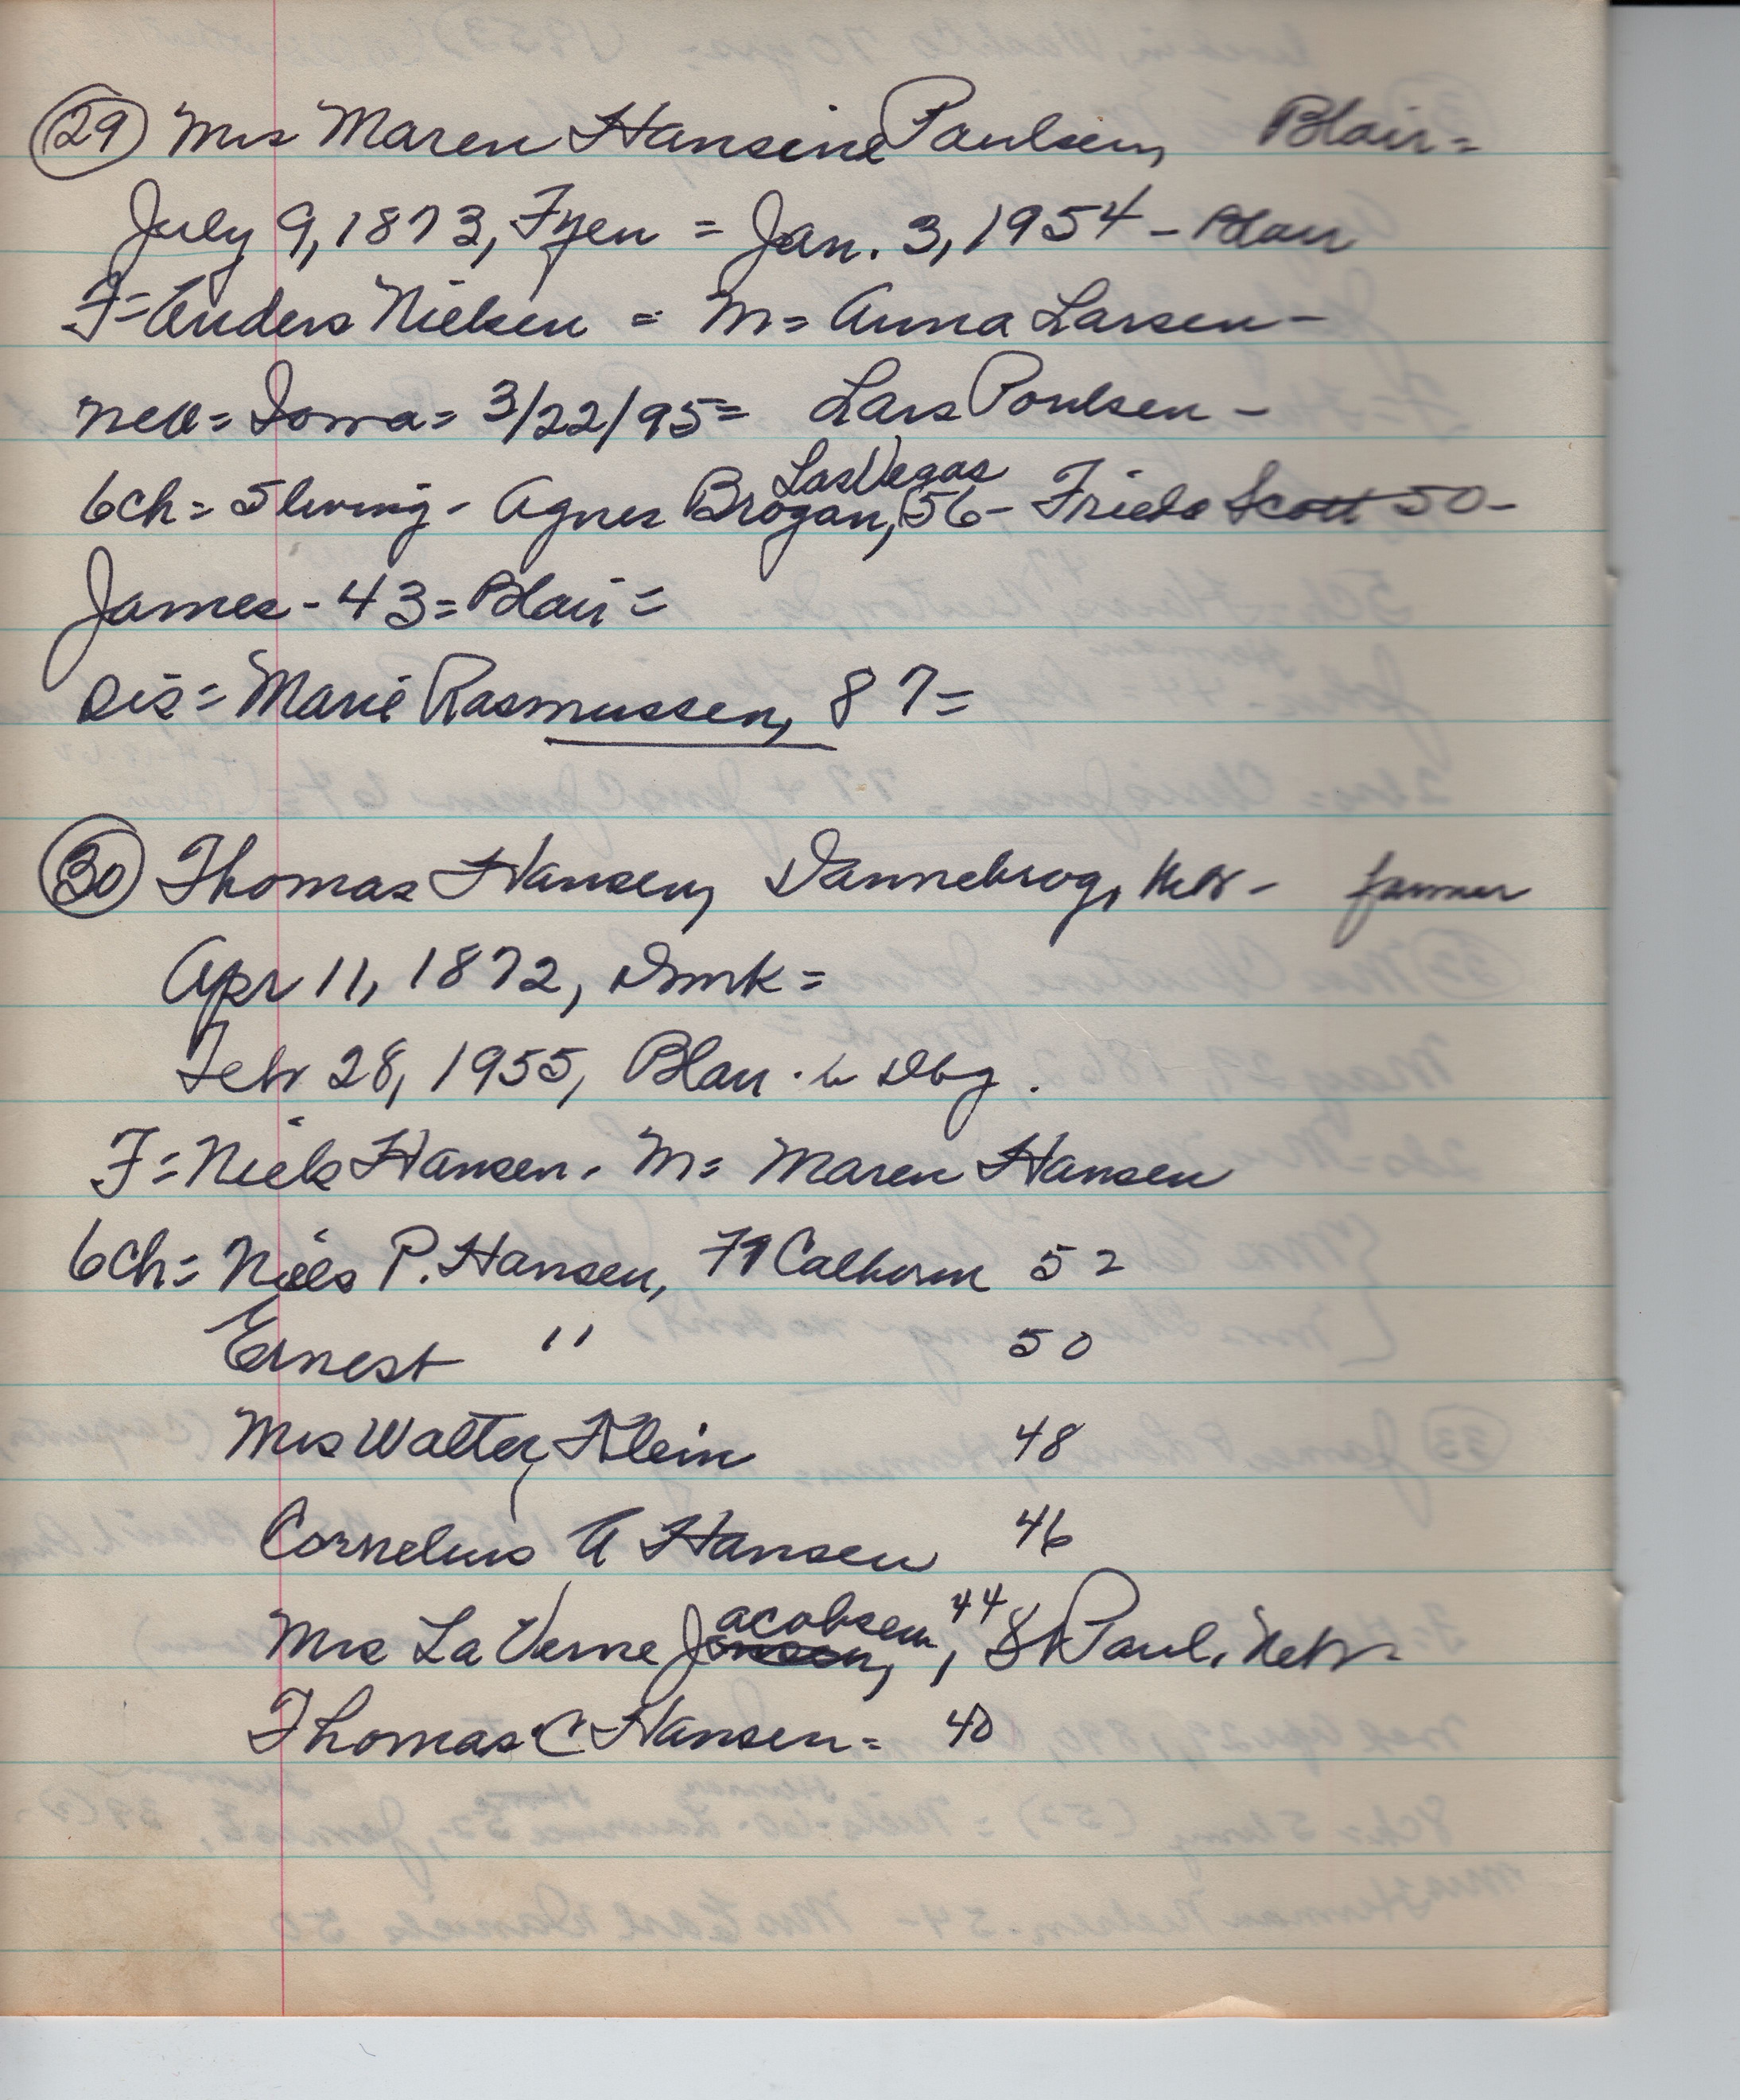 29 Mrs Maren Hansine Paulsen, Blair =
July 9, 1873, Fyen = Jan. 3, 1954 - Blair
F = Anders Nielsen = M = Anna Larsen -
= Iowa = 3/22/95 = Lars Poulsen -
6 ch = 5 living - Agnes Brogan, Las Vegas 56 - Frieda Scott 50 -
James - 43 = Blair =
Sis = Marie Rasmussen, 87 =
30 Thomas Hansen, Dannebrog, Nebr - farmer
Apr 11, 1872, Dmk =
Febr 28, 1955, Blair . b Dbg .
F = Niels Hansen . M = Maren Hansen
6 ch = Niels P. Hansen, Ft Calhoun 52
Ernest " 50
Mrs Walter Klein 48
Cornelius A Hansen 46
Mrs La Verne Jacobsen, 44, St Paul, Nebr -
Thomas C Hansen = 40